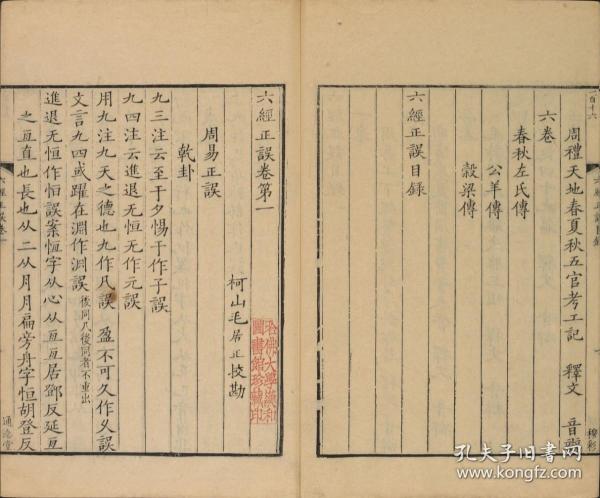 一百十六
六經正誤目録
周禮天地春夏秋五官考工記 釋文 音
六卷
春秋左氏傳
公羊傳
穀梁傳
六經正誤目録
六經正誤卷第一
柯山毛居正校勘
哈佛大學漢和
圖書館珍藏印
周易正誤
乾卦
九三注云至于夕惕于作子誤
九四注云進退无恒无作元誤
用九注九天之德也九作凡誤 盈不可久作乆誤
文言九四或躍在淵作渊誤後同凡後同者不重出
進退无恒作怕誤案恒字从心从亙亙居鄧反延亙
之亙直也長也从二从月月扁旁舟字恒胡登反
六經正誤卷一
通志堂
孔夫子旧书网
www.kongfz.com